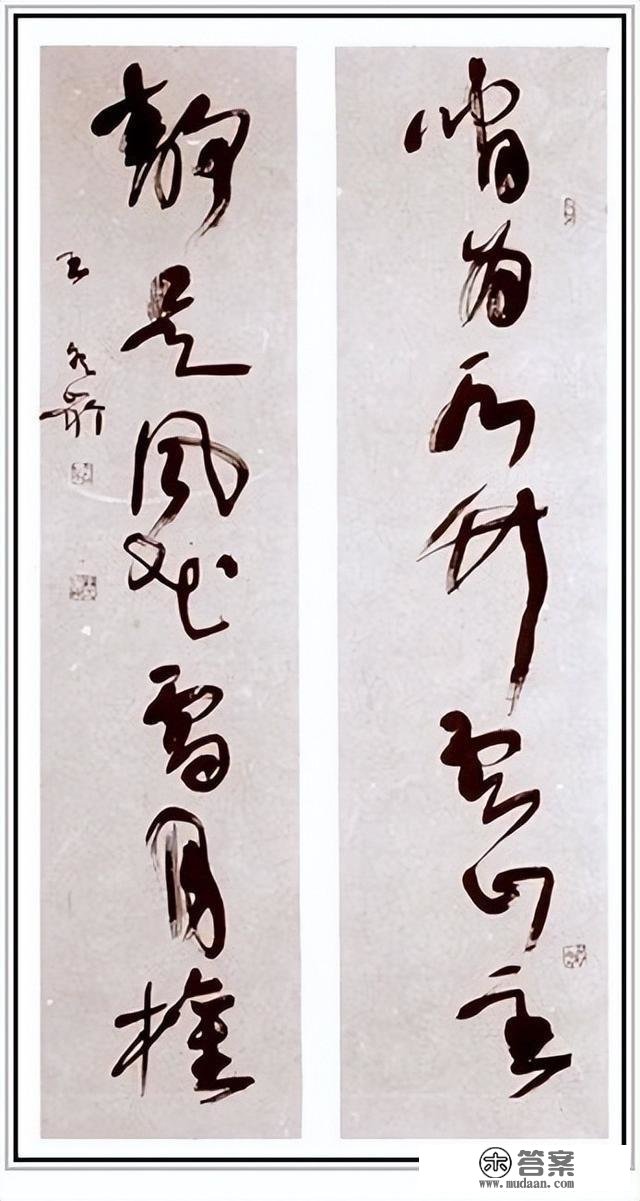 閒為水竹雲山主
靜得風花雪月權
王冬齡
答案
www.mudaan.com